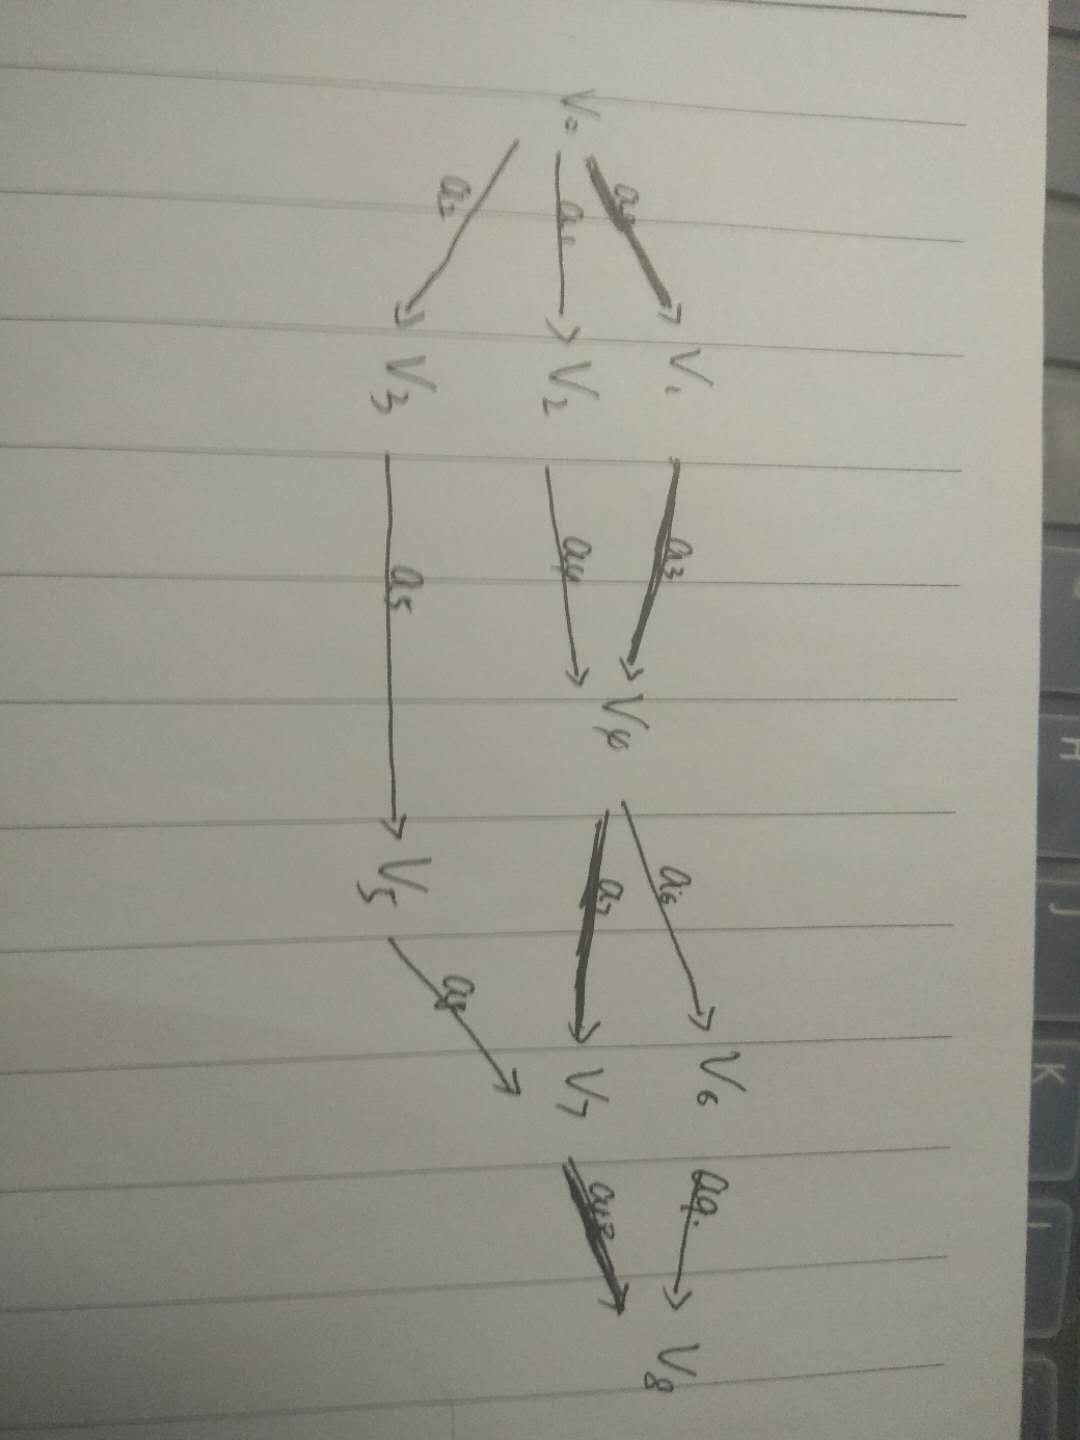 V₀
a₀
a₁
a₂
V₁
V₂
V₃
a₃
a₄
a₅
V₄
V₅
a₆
a₇
a₈
V₆
V₇
a₉.
a₁₀
V₈
H
J
K
L